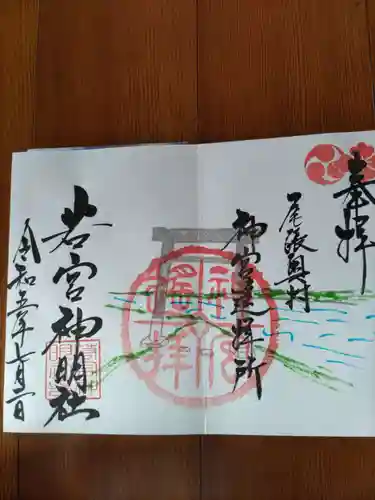 奉拝
尾張奥村
神宮遥拝所
若宮神明社
令和五年七月一日